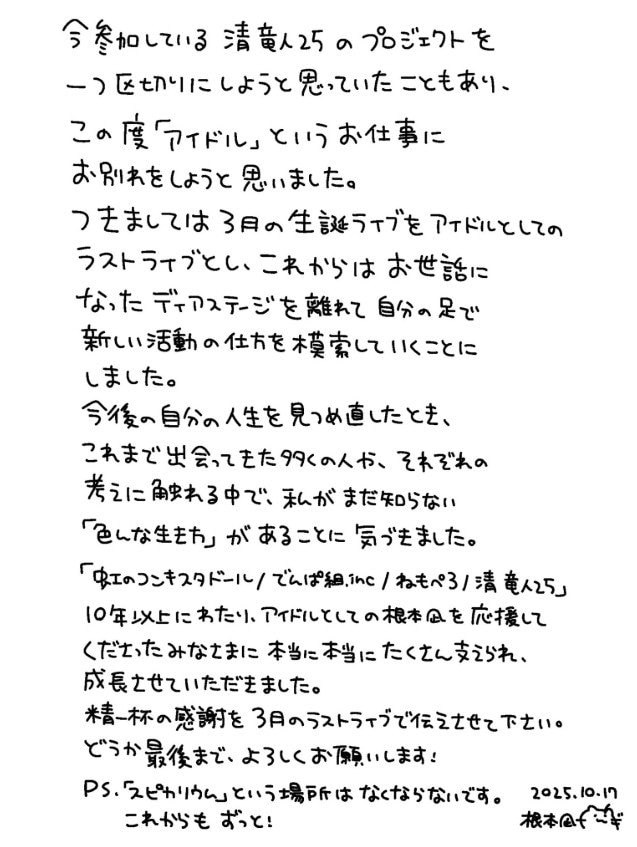 今参加している 清竜人25 の プロジェクトを
一つ区切りにしようと思っていたこともあり、
この度「アイドル」というお仕事に
お別れをしようと思いました。
つきましては 3月の生誕ライブを アイドルとしての
ラストライブとし、これからは お世話に
なった ディアステージを離れて 自分の足で
新しい活動の仕方を模索していくことに
しました。
今後の自分の人生を見つめ直したとき、
これまで出会ってきた多くの人や、それぞれの
考えに触れる中で、私が まだ知らない
「色んな生き方」が あることに 気づきました。
「虹のコンキスタドール/でんぱ組.inc/ねもぺろ/清竜人25」
10年以上にわたり、アイドルとしての根本凪を応援して
くださったみなさまに 本当に本当に たくさん支えられ、
成長させていただきました。
精一杯の感謝を 3月のラストライブで伝えさせて下さい。
どうか最後まで、よろしくお願いします!
P.S.「スピカリウム」という場所は なくならないです。
これからも ずっと!
2025.10.17
根本凪